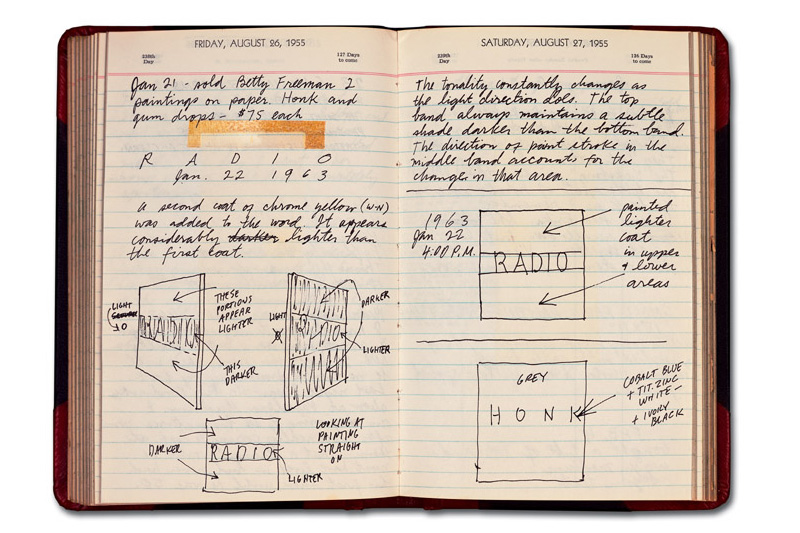 FRIDAY, AUGUST 26, 1955
238th
Day
127 Days
to come
Jan 21 - sold Betty Freeman 2
paintings on paper. Honk and
gum drops - $75 each
R A D I O
Jan. 22 1963
A second coat of chrome yellow (W-N)
was added to the word. It appears
considerably darker lighter than
the first coat.
LIGHT
SOURCE
RADIO
THESE
PORTIONS
APPEAR
LIGHTER
THIS
DARKER
LIGHT
RADIO
DARKER
LIGHTER
DARKER
RADIO
LIGHTER
LOOKING AT
PAINTING
STRAIGHT
ON
SATURDAY, AUGUST 27, 1955
239th
Day
126 Days
to come
The tonality constantly changes as
the light direction does. The top
band always maintains a subtle
shade darker than the bottom band.
The direction of paint stroke in the
middle band accounts for the
changes in that area.
1963
Jan 22
4:00 P.M.
RADIO
painted
lighter
coat
in upper
& lower
areas
GREY
HONK
COBALT BLUE
+ TIT. ZINC
WHITE -
+ IVORY
BLACK